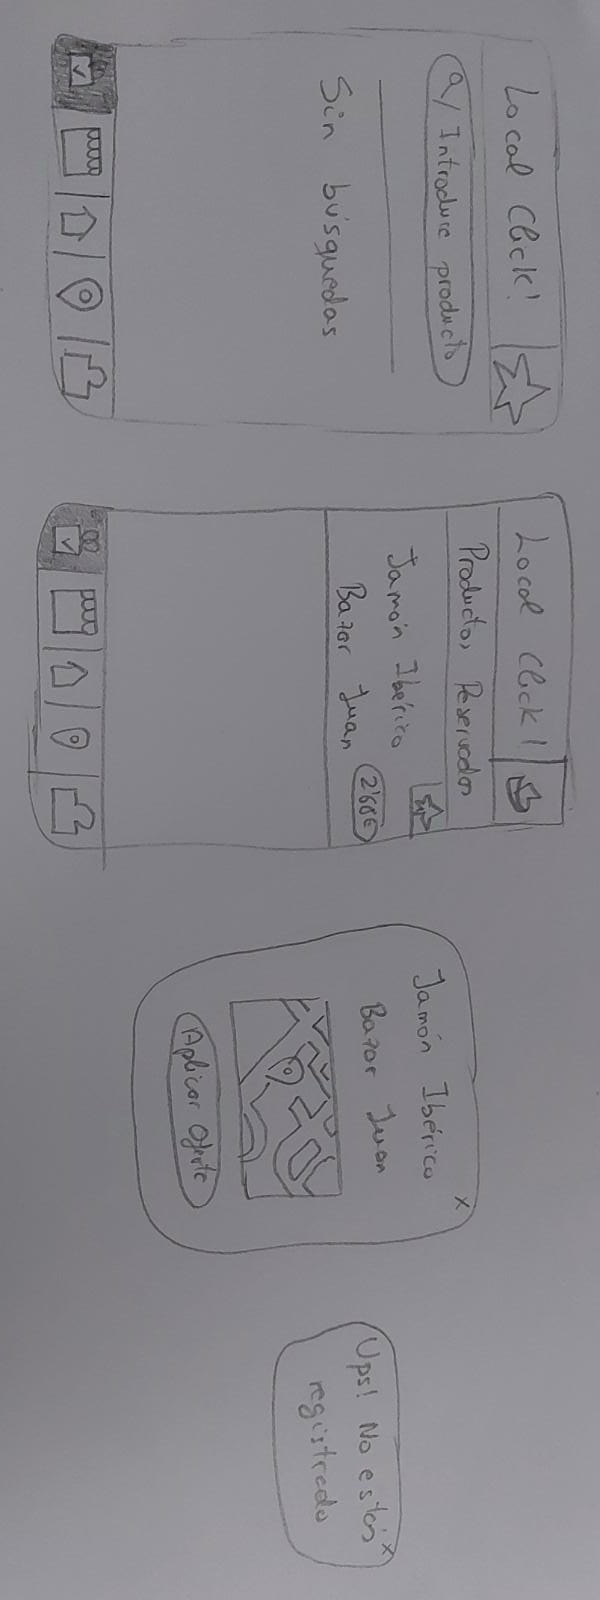 Local Click!
Introduce producto
Sin búsquedas
Local Click!
Productos Reservados
Jamón Ibérico
Bazar Juan
2'68€
Jamón Ibérico
Bazar Juan
Aplicar Oferta
x
Ups! No estás
registrado
x